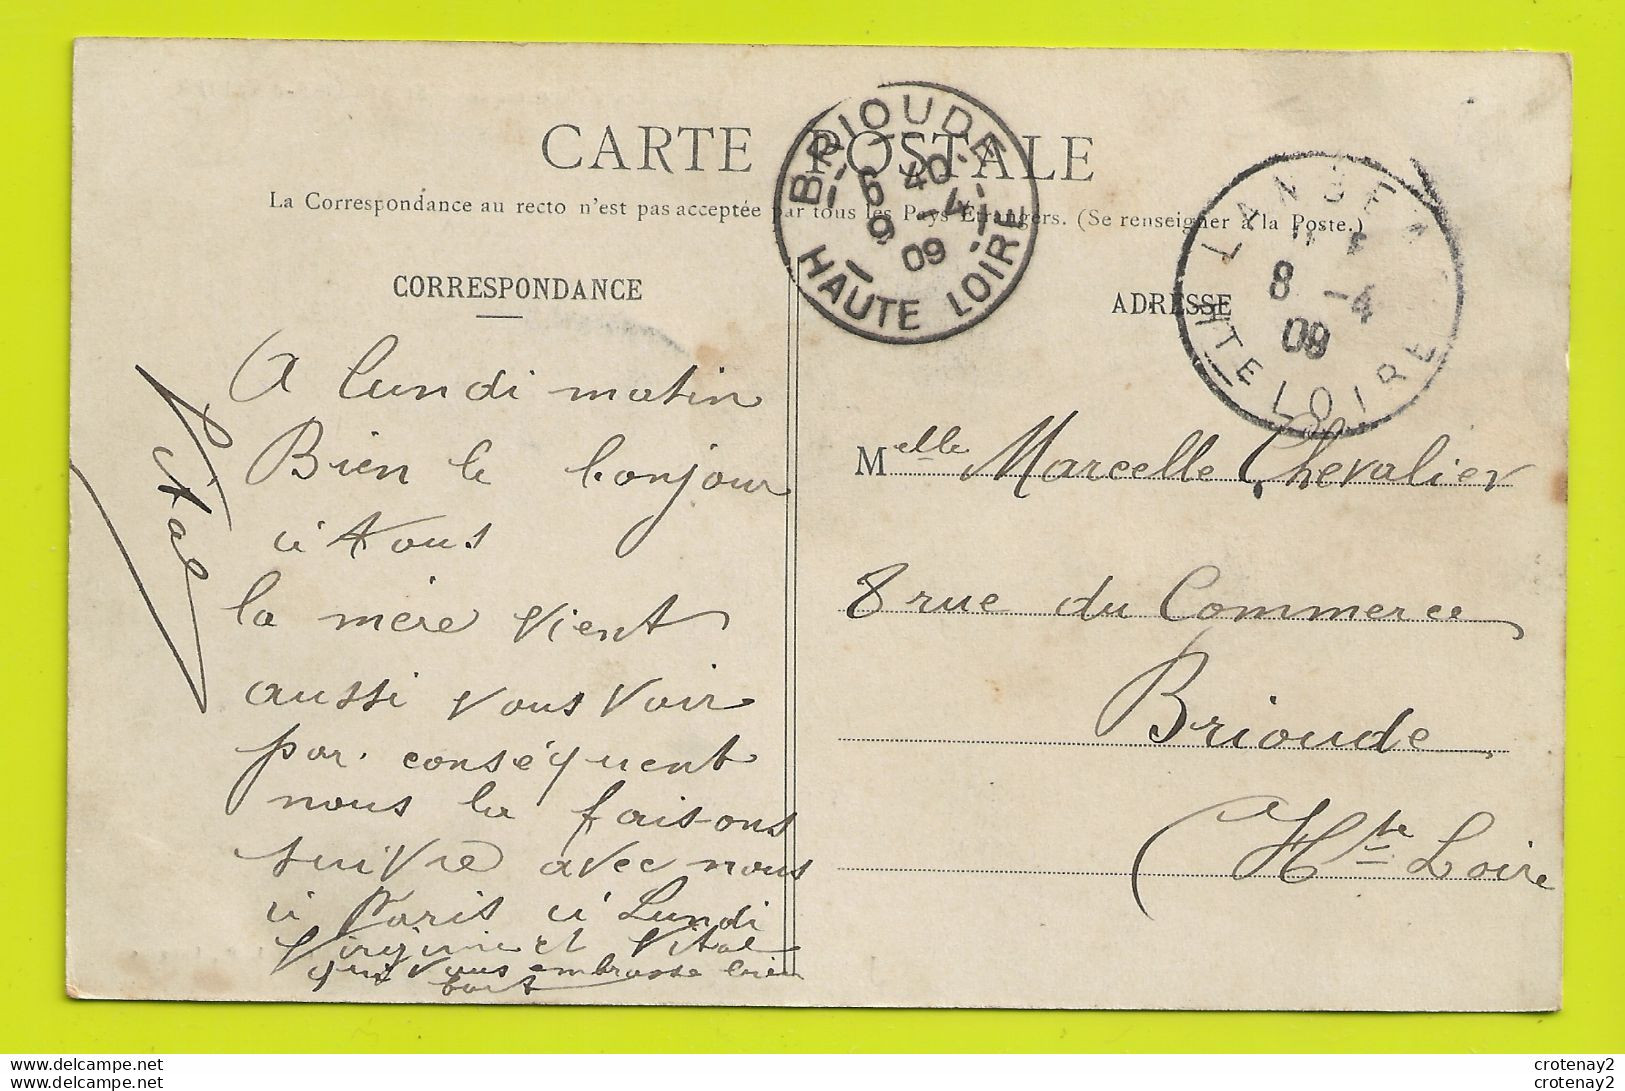 CARTE POSTALE
La Correspondance au recto n'est pas acceptée par tous les Pays Étrangers. (Se renseigner à la Poste.)
BRIOUDE
6 40
9 -4
09
HAUTE LOIRE
8 -4
09
HTE LOIRE
CORRESPONDANCE
ADRESSE
A lundi matin
Bien le bonjour
à tous
la mère vient
aussi vous voir
par conséquent
nous la faisons
suivre avec nous
à Paris à Lundi
Virginie et Vital
qui vous embrasse bien
tous
Vital
Melle Marcelle Chevalier
8 rue du Commerce
Brioude
Hte Loire
crotenay2
crotenay2
www.delcampe.net
www.delcampe.net